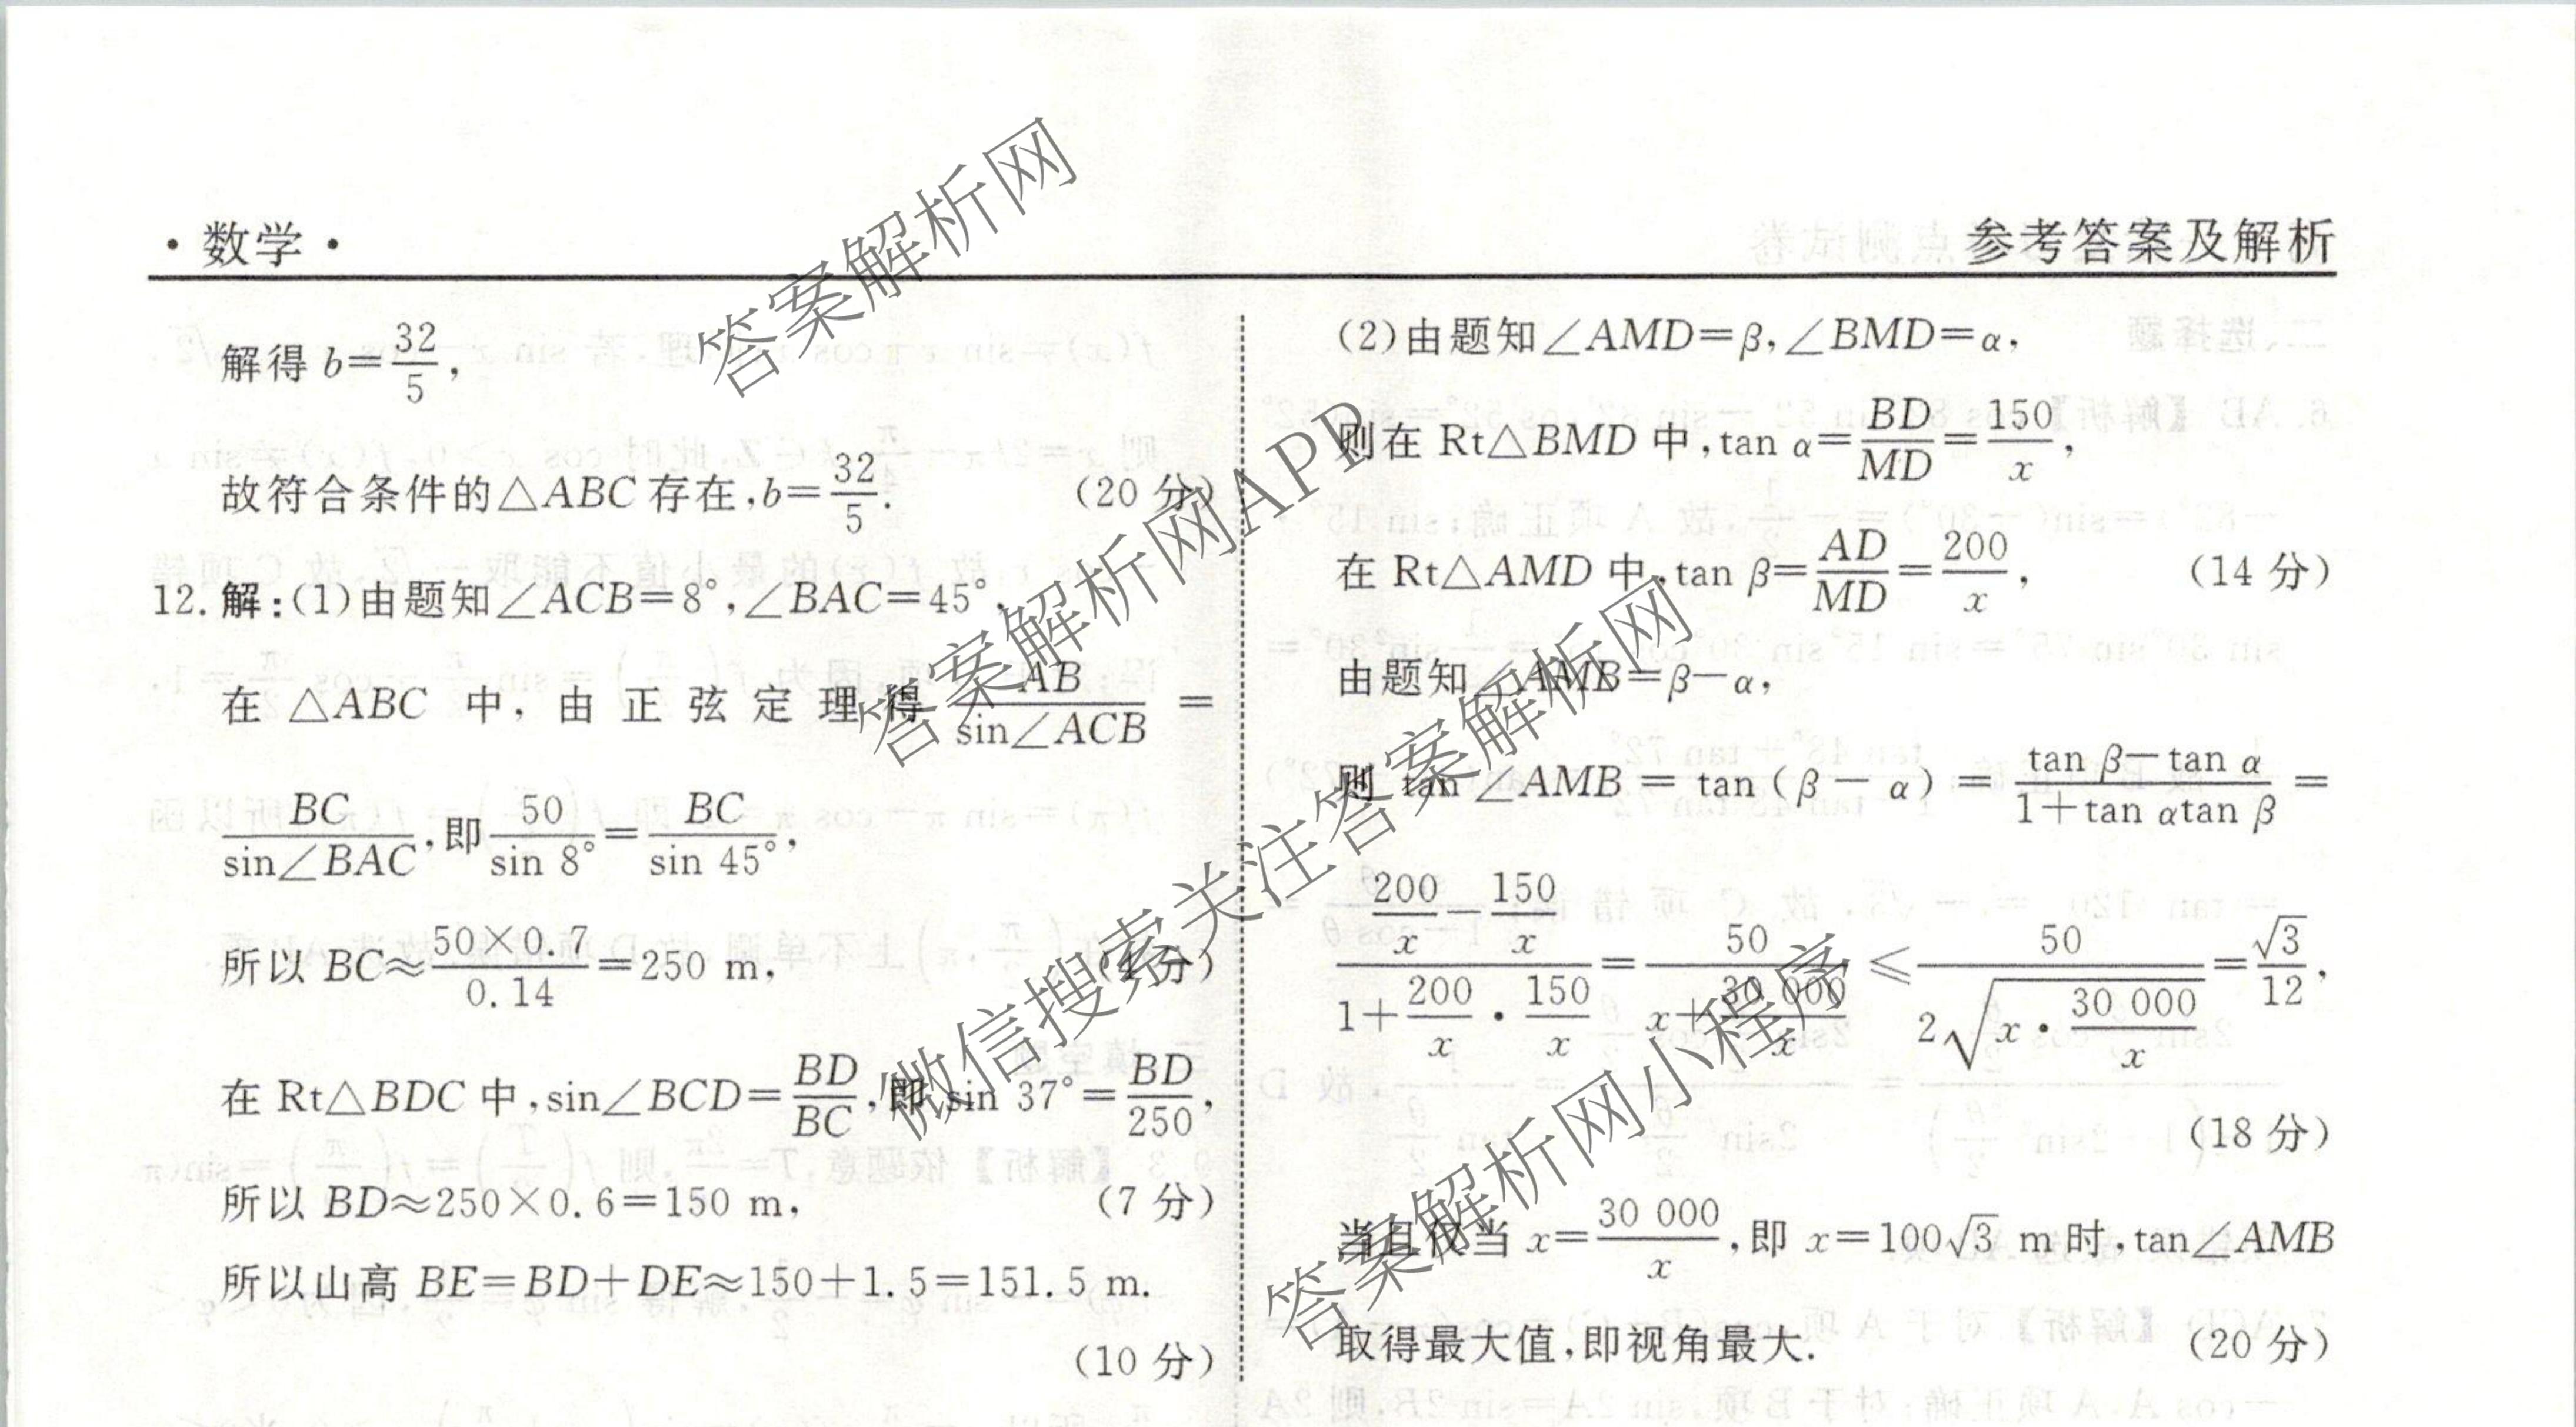 ·数学·
参考答案及解析
解得 b=32/5,
故符合条件的△ABC存在,b=32/5. (20分)
12.解:(1)由题知∠ACB=8°,∠BAC=45°,
在 △ABC 中, 由 正 弦 定 理 得 AB/sin∠ACB =
BC/sin∠BAC,即50/sin 8°=BC/sin 45°,
所以 BC≈50×0.7/0.14=250 m, (4分)
在 Rt△BDC 中,sin∠BCD=BD/BC,即 sin 37°=BD/250,
所以 BD≈250×0.6=150 m, (7分)
所以山高 BE=BD+DE≈150+1.5=151.5 m.
(10分)
(2)由题知∠AMD=β,∠BMD=α,
则在 Rt△BMD 中,tan α=BD/MD=150/x,
在 Rt△AMD 中,tan β=AD/MD=200/x, (14分)
由题知∠AMB=β-α,
则 tan ∠AMB = tan (β - α) = (tan β-tan α)/(1+tan αtan β) =
(200/x-150/x)/(1+200/x·150/x)=50/(x+30 000/x)≤50/(2√(x·30 000/x))=√3/12,
(18分)
当且仅当 x=30 000/x,即 x=100√3 m时,tan∠AMB
取得最大值,即视角最大. (20分)
答案解析网
答案解析网APP
微信搜索关注答案解析网
答案解析网小程序